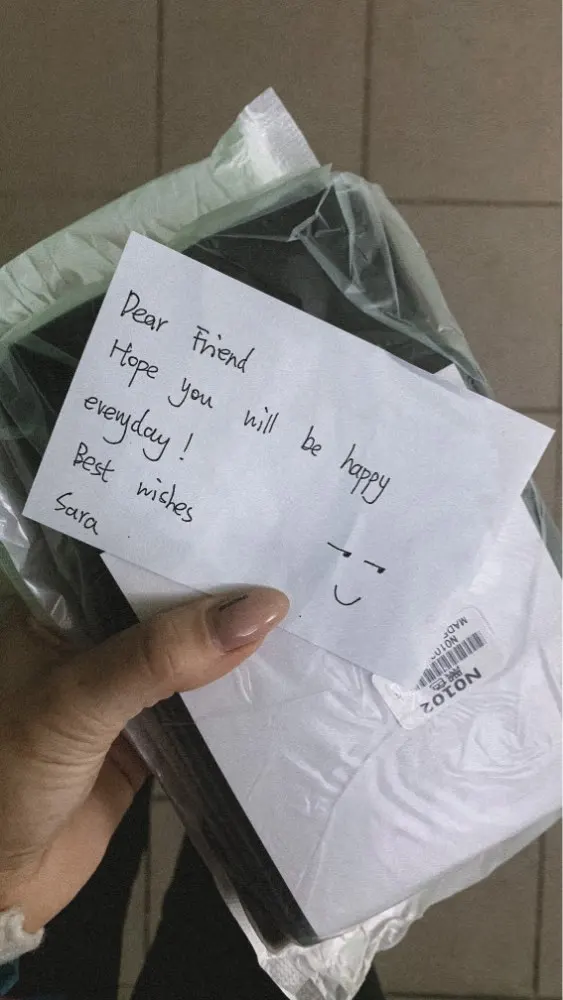 Dear Friend
Hope you will be happy
everyday!
Best wishes
Sara
N0102
MADE